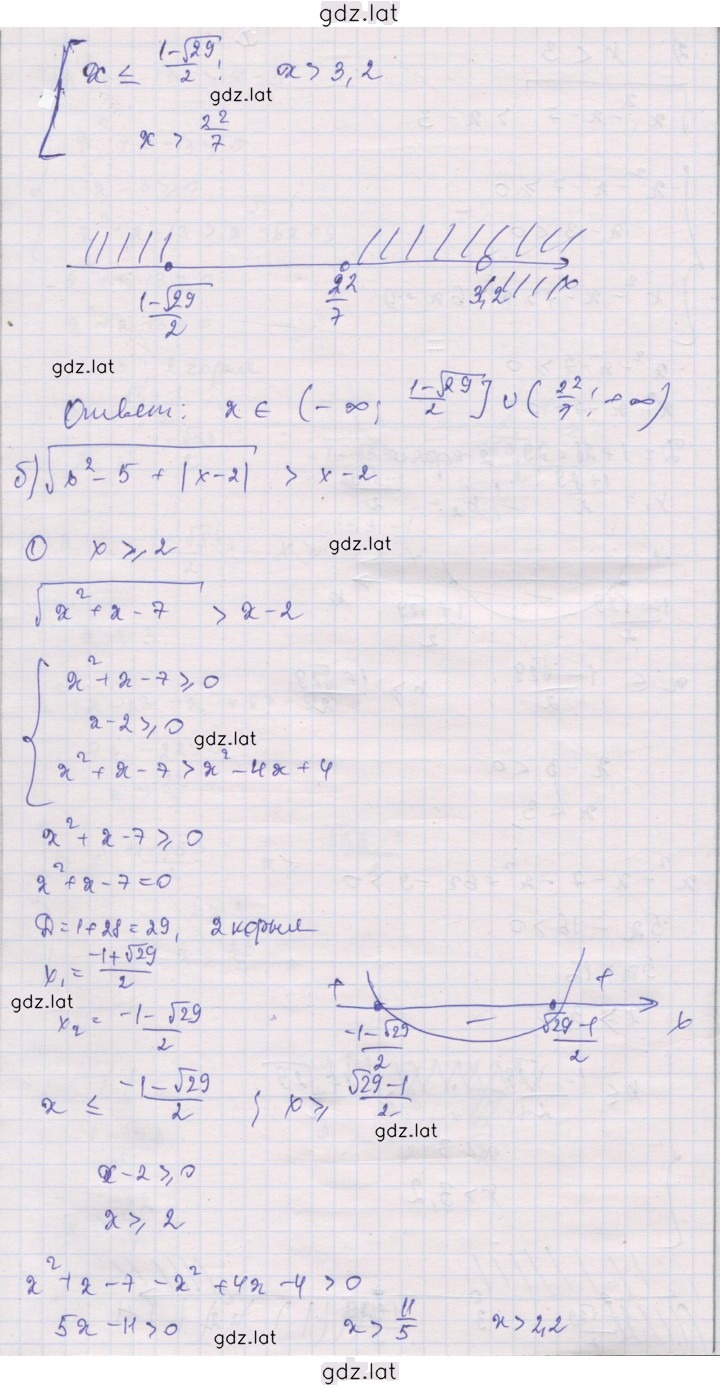 gdz.lat
x ≤ (1-√29)/2; x > 3,2
gdz.lat
x > 22/7
(1-√29)/2 22/7 3,2 x
gdz.lat
Ответ: x ∈ (-∞; (1-√29)/2] ∪ (22/7; +∞)
б) √(x²-5+|x-2|) > x-2
① x ≥ 2
gdz.lat
√(x²+x-7) > x-2
x²+x-7 ≥ 0
x-2 ≥ 0
gdz.lat
x²+x-7 > x²-4x+4
x²+x-7 ≥ 0
x²+x-7=0
Д=1+28=29, 2 корня
x₁ = (-1+√29)/2
gdz.lat
x₂ = (-1-√29)/2
+ - +
(-1-√29)/2 (√29-1)/2 x
x ≤ (-1-√29)/2 ; x ≥ (√29-1)/2
gdz.lat
x-2 ≥ 0
x ≥ 2
x²+x-7-x²+4x-4 > 0
5x-11>0 x > 11/5 x > 2,2
gdz.lat
gdz.lat